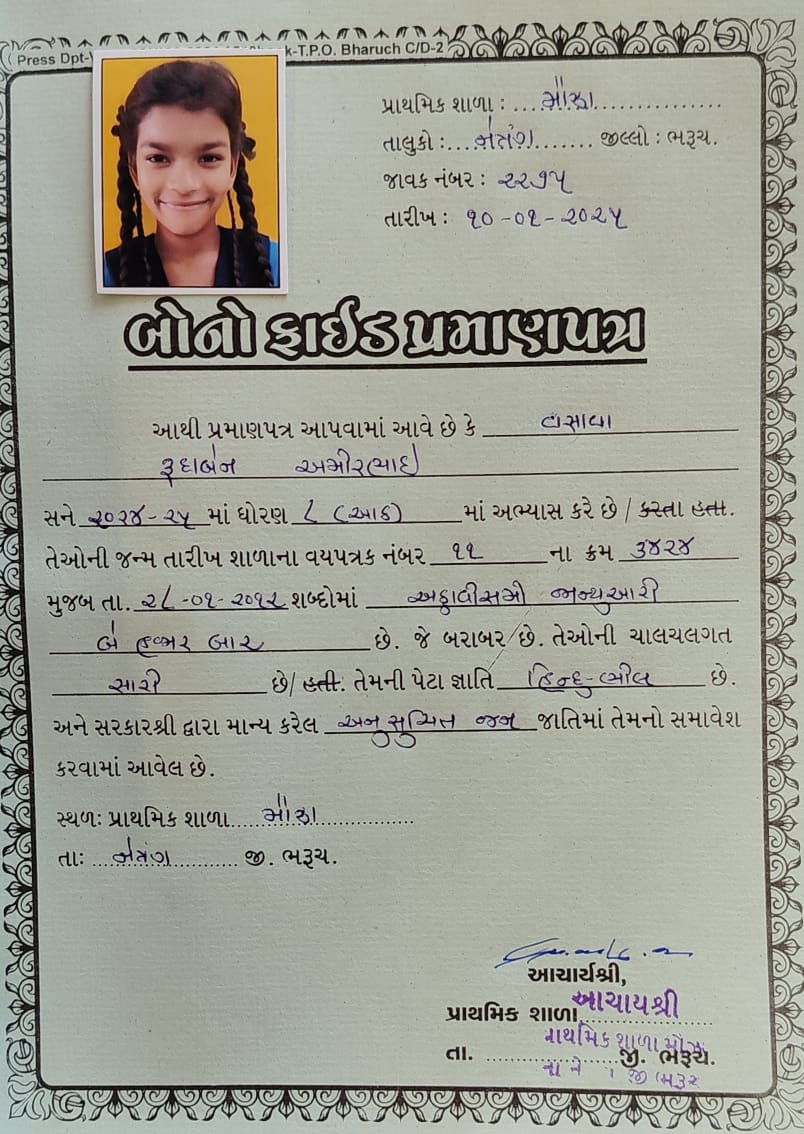 Press Dpt- -T.P.O. Bharuch C/D-2
પ્રાથમિક શાળા : ... મૌઝા...............
તાલુકો :.... નેત્રંગ....... જીલ્લો : ભરૂચ.
જાવક નંબર : ૨૨૭૫
તારીખ : ૧૦-૦૧-૨૦૨૫
બોનો ફાઈડ પ્રમાણપત્ર
આથી પ્રમાણપત્ર આપવામાં આવે છે કે વસાવા
રૂદાબેન અમીરભાઇ
સને ૨૦૨૪-૨૫ માં ધોરણ ૮ (આઠ) માં અભ્યાસ કરે છે / કરતા હતા.
તેઓની જન્મ તારીખ શાળાના વયપત્રક નંબર ૧૧ ના ક્રમ ૩૪૨૪
મુજબ તા. ૨૮-૦૧-૨૦૧૨ શબ્દોમાં અઠ્ઠાવીસમી જાન્યુઆરી
બે હજાર બાર છે. જે બરાબર છે. તેઓની ચાલચલગત
સારી છે/ હતી. તેમની પેટા જ્ઞાતિ હિન્દુ-ભીલ છે.
અને સરકારશ્રી દ્વારા માન્ય કરેલ અનુસુચિત જન જાતિમાં તેમનો સમાવેશ
કરવામાં આવેલ છે.
સ્થળઃ પ્રાથમિક શાળા..... મૌઝા..................
તાઃ ... નેત્રંગ.......... જી. ભરૂચ.
આચાર્યશ્રી,
પ્રાથમિક શાળા આચાયશ્રી
તા. ....................જી. ભરૂચ.
પ્રાથમિક શાળા મૌઝા
જી ભરૂચ